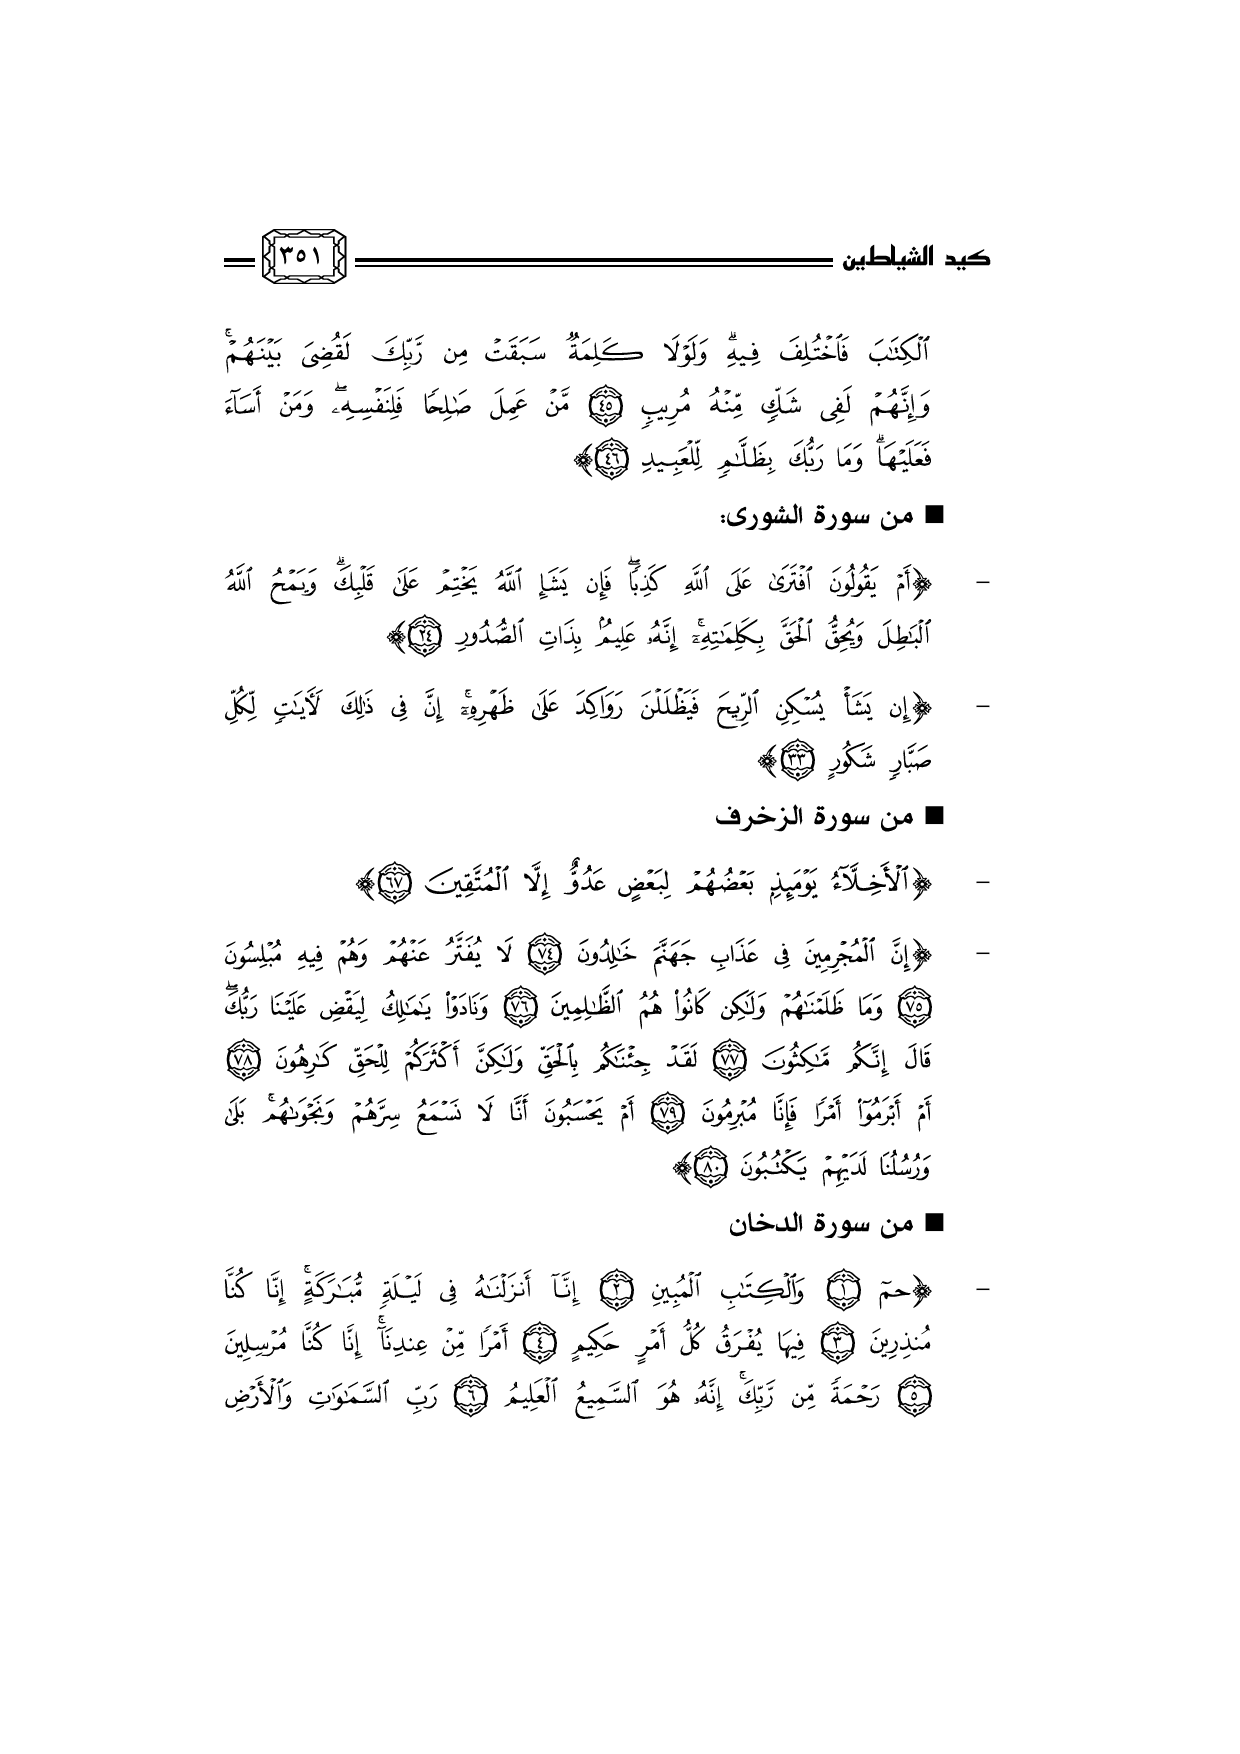 كيد الشياطين ٣٥١
ٱلۡكِتَٰبَ فَٱخۡتُلِفَ فِيهِۗ وَلَوۡلَا كَلِمَةٞ سَبَقَتۡ مِن رَّبِّكَ لَقُضِيَ بَيۡنَهُمۡۚ
وَإِنَّهُمۡ لَفِي شَكّٖ مِّنۡهُ مُرِيبٖ ٤٥ مَّنۡ عَمِلَ صَٰلِحٗا فَلِنَفۡسِهِۦۖ وَمَنۡ أَسَآءَ
فَعَلَيۡهَاۗ وَمَا رَبُّكَ بِظَلَّٰمٖ لِّلۡعَبِيدِ ٤٦﴾
■ من سورة الشورى:
- ﴿أَمۡ يَقُولُونَ ٱفۡتَرَىٰ عَلَى ٱللَّهِ كَذِبٗاۖ فَإِن يَشَإِ ٱللَّهُ يَخۡتِمۡ عَلَىٰ قَلۡبِكَۗ وَيَمۡحُ ٱللَّهُ
ٱلۡبَٰطِلَ وَيُحِقُّ ٱلۡحَقَّ بِكَلِمَٰتِهِۦٓۚ إِنَّهُۥ عَلِيمُۢ بِذَاتِ ٱلصُّدُورِ ٢٤﴾
- ﴿إِن يَشَأۡ يُسۡكِنِ ٱلرِّيحَ فَيَظۡلَلۡنَ رَوَاكِدَ عَلَىٰ ظَهۡرِهِۦٓۚ إِنَّ فِي ذَٰلِكَ لَأٓيَٰتٖ لِّكُلِّ
صَبَّارٖ شَكُورٍ ٣٣﴾
■ من سورة الزخرف
- ﴿ٱلۡأَخِلَّآءُ يَوۡمَئِذِۭ بَعۡضُهُمۡ لِبَعۡضٍ عَدُوٌّ إِلَّا ٱلۡمُتَّقِينَ ٦٧﴾
- ﴿إِنَّ ٱلۡمُجۡرِمِينَ فِي عَذَابِ جَهَنَّمَ خَٰلِدُونَ ٧٤ لَا يُفَتَّرُ عَنۡهُمۡ وَهُمۡ فِيهِ مُبۡلِسُونَ
٧٥ وَمَا ظَلَمۡنَٰهُمۡ وَلَٰكِن كَانُواْ هُمُ ٱلظَّٰلِمِينَ ٧٦ وَنَادَوۡاْ يَٰمَٰلِكُ لِيَقۡضِ عَلَيۡنَا رَبُّكَۖ
قَالَ إِنَّكُم مَّٰكِثُونَ ٧٧ لَقَدۡ جِئۡنَٰكُم بِٱلۡحَقِّ وَلَٰكِنَّ أَكۡثَرَكُمۡ لِلۡحَقِّ كَٰرِهُونَ ٧٨
أَمۡ أَبۡرَمُوٓاْ أَمۡرٗا فَإِنَّا مُبۡرِمُونَ ٧٩ أَمۡ يَحۡسَبُونَ أَنَّا لَا نَسۡمَعُ سِرَّهُمۡ وَنَجۡوَىٰهُمۚ بَلَىٰ
وَرُسُلُنَا لَدَيۡهِمۡ يَكۡتُبُونَ ٨٠﴾
■ من سورة الدخان
- ﴿حمٓ ١ وَٱلۡكِتَٰبِ ٱلۡمُبِينِ ٢ إِنَّآ أَنزَلۡنَٰهُ فِي لَيۡلَةٖ مُّبَٰرَكَةٍۚ إِنَّا كُنَّا
مُنذِرِينَ ٣ فِيهَا يُفۡرَقُ كُلُّ أَمۡرٍ حَكِيمٍ ٤ أَمۡرٗا مِّنۡ عِندِنَآۚ إِنَّا كُنَّا مُرۡسِلِينَ
٥ رَحۡمَةٗ مِّن رَّبِّكَۚ إِنَّهُۥ هُوَ ٱلسَّمِيعُ ٱلۡعَلِيمُ ٦ رَبِّ ٱلسَّمَٰوَٰتِ وَٱلۡأَرۡضِ